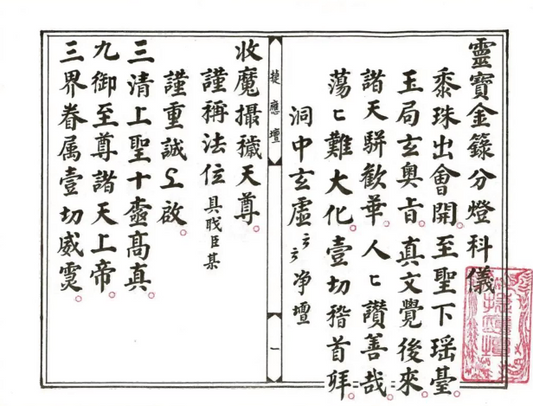 靈寶金籙分燈科儀
黍珠出會開。至聖下瑶臺。
玉局玄奥旨。真文覺後來。
諸天駢歡華。人匕讚善哉。
蕩匕難大化。壹切稽首拜。
洞中玄虛 〻〻 净壇
捷應壇
一
收魔攝穢天尊。
謹稱法位 具戝臣某
謹重誠上啟。
三清上聖十髙真。
九御至尊諸天上帝。
三界眷属壹切威霛。